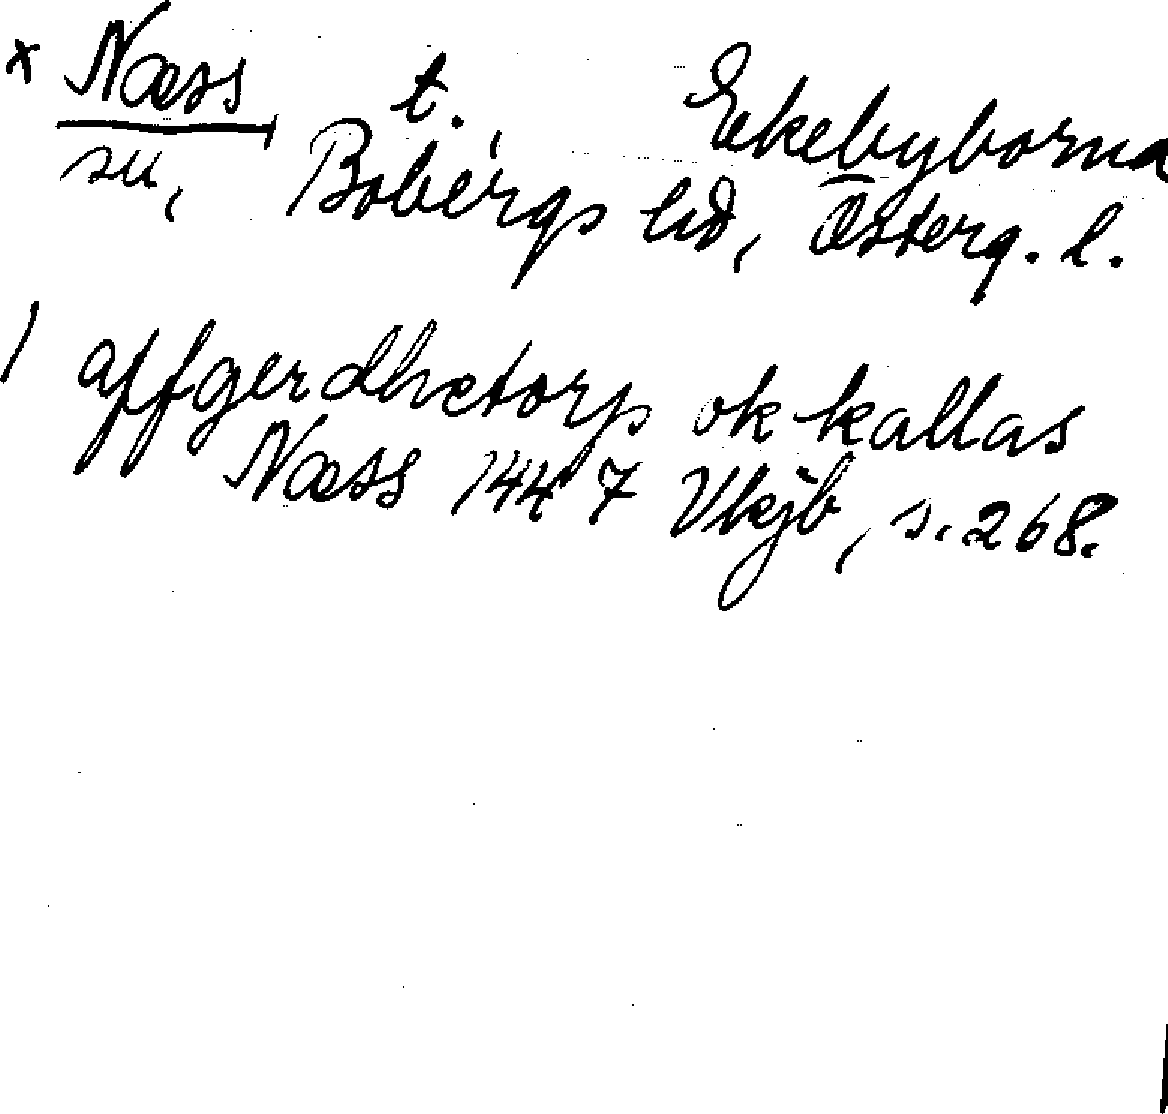 x Næss, t. Ekebyborna
su, Bobergs hd, Österg. l.
1 affgerdhetorp ok kallas
Næss 1447 Vkjb, s. 268.